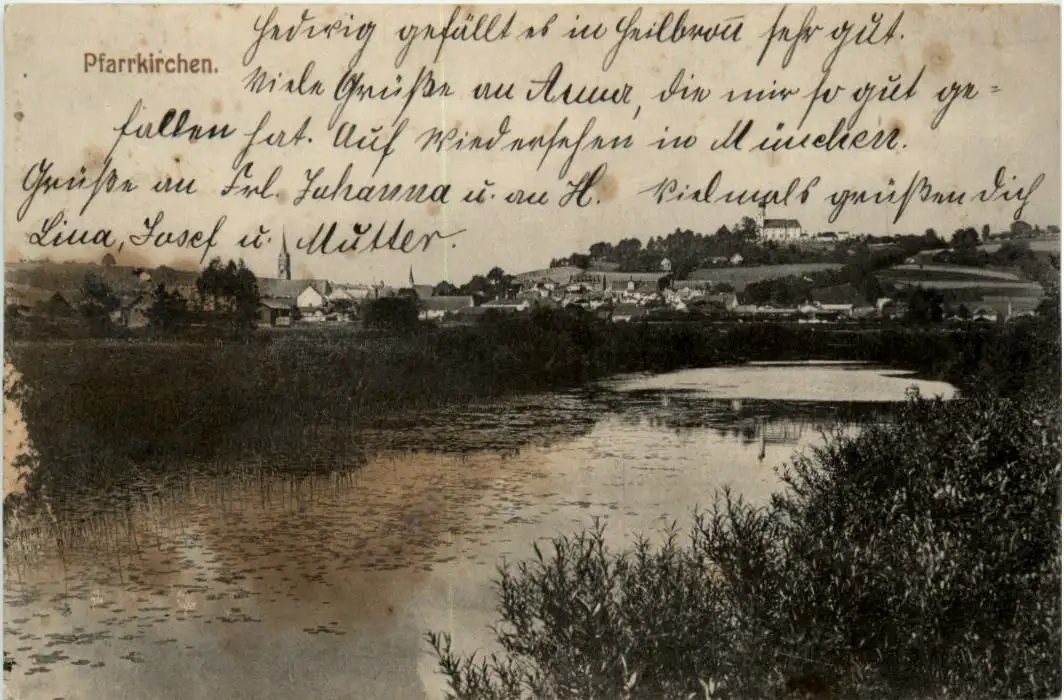 Pfarrkirchen.
Hedwig gefällt es in Heilbron̅ sehr gut.
Viele Grüße an Anna, die mir so gut ge=
fallen hat. Auf Wiedersehen in München.
Grüße an Frl. Johanna u. an H. Vielmals grüßen Dich
Lina, Josef u. Mutter.